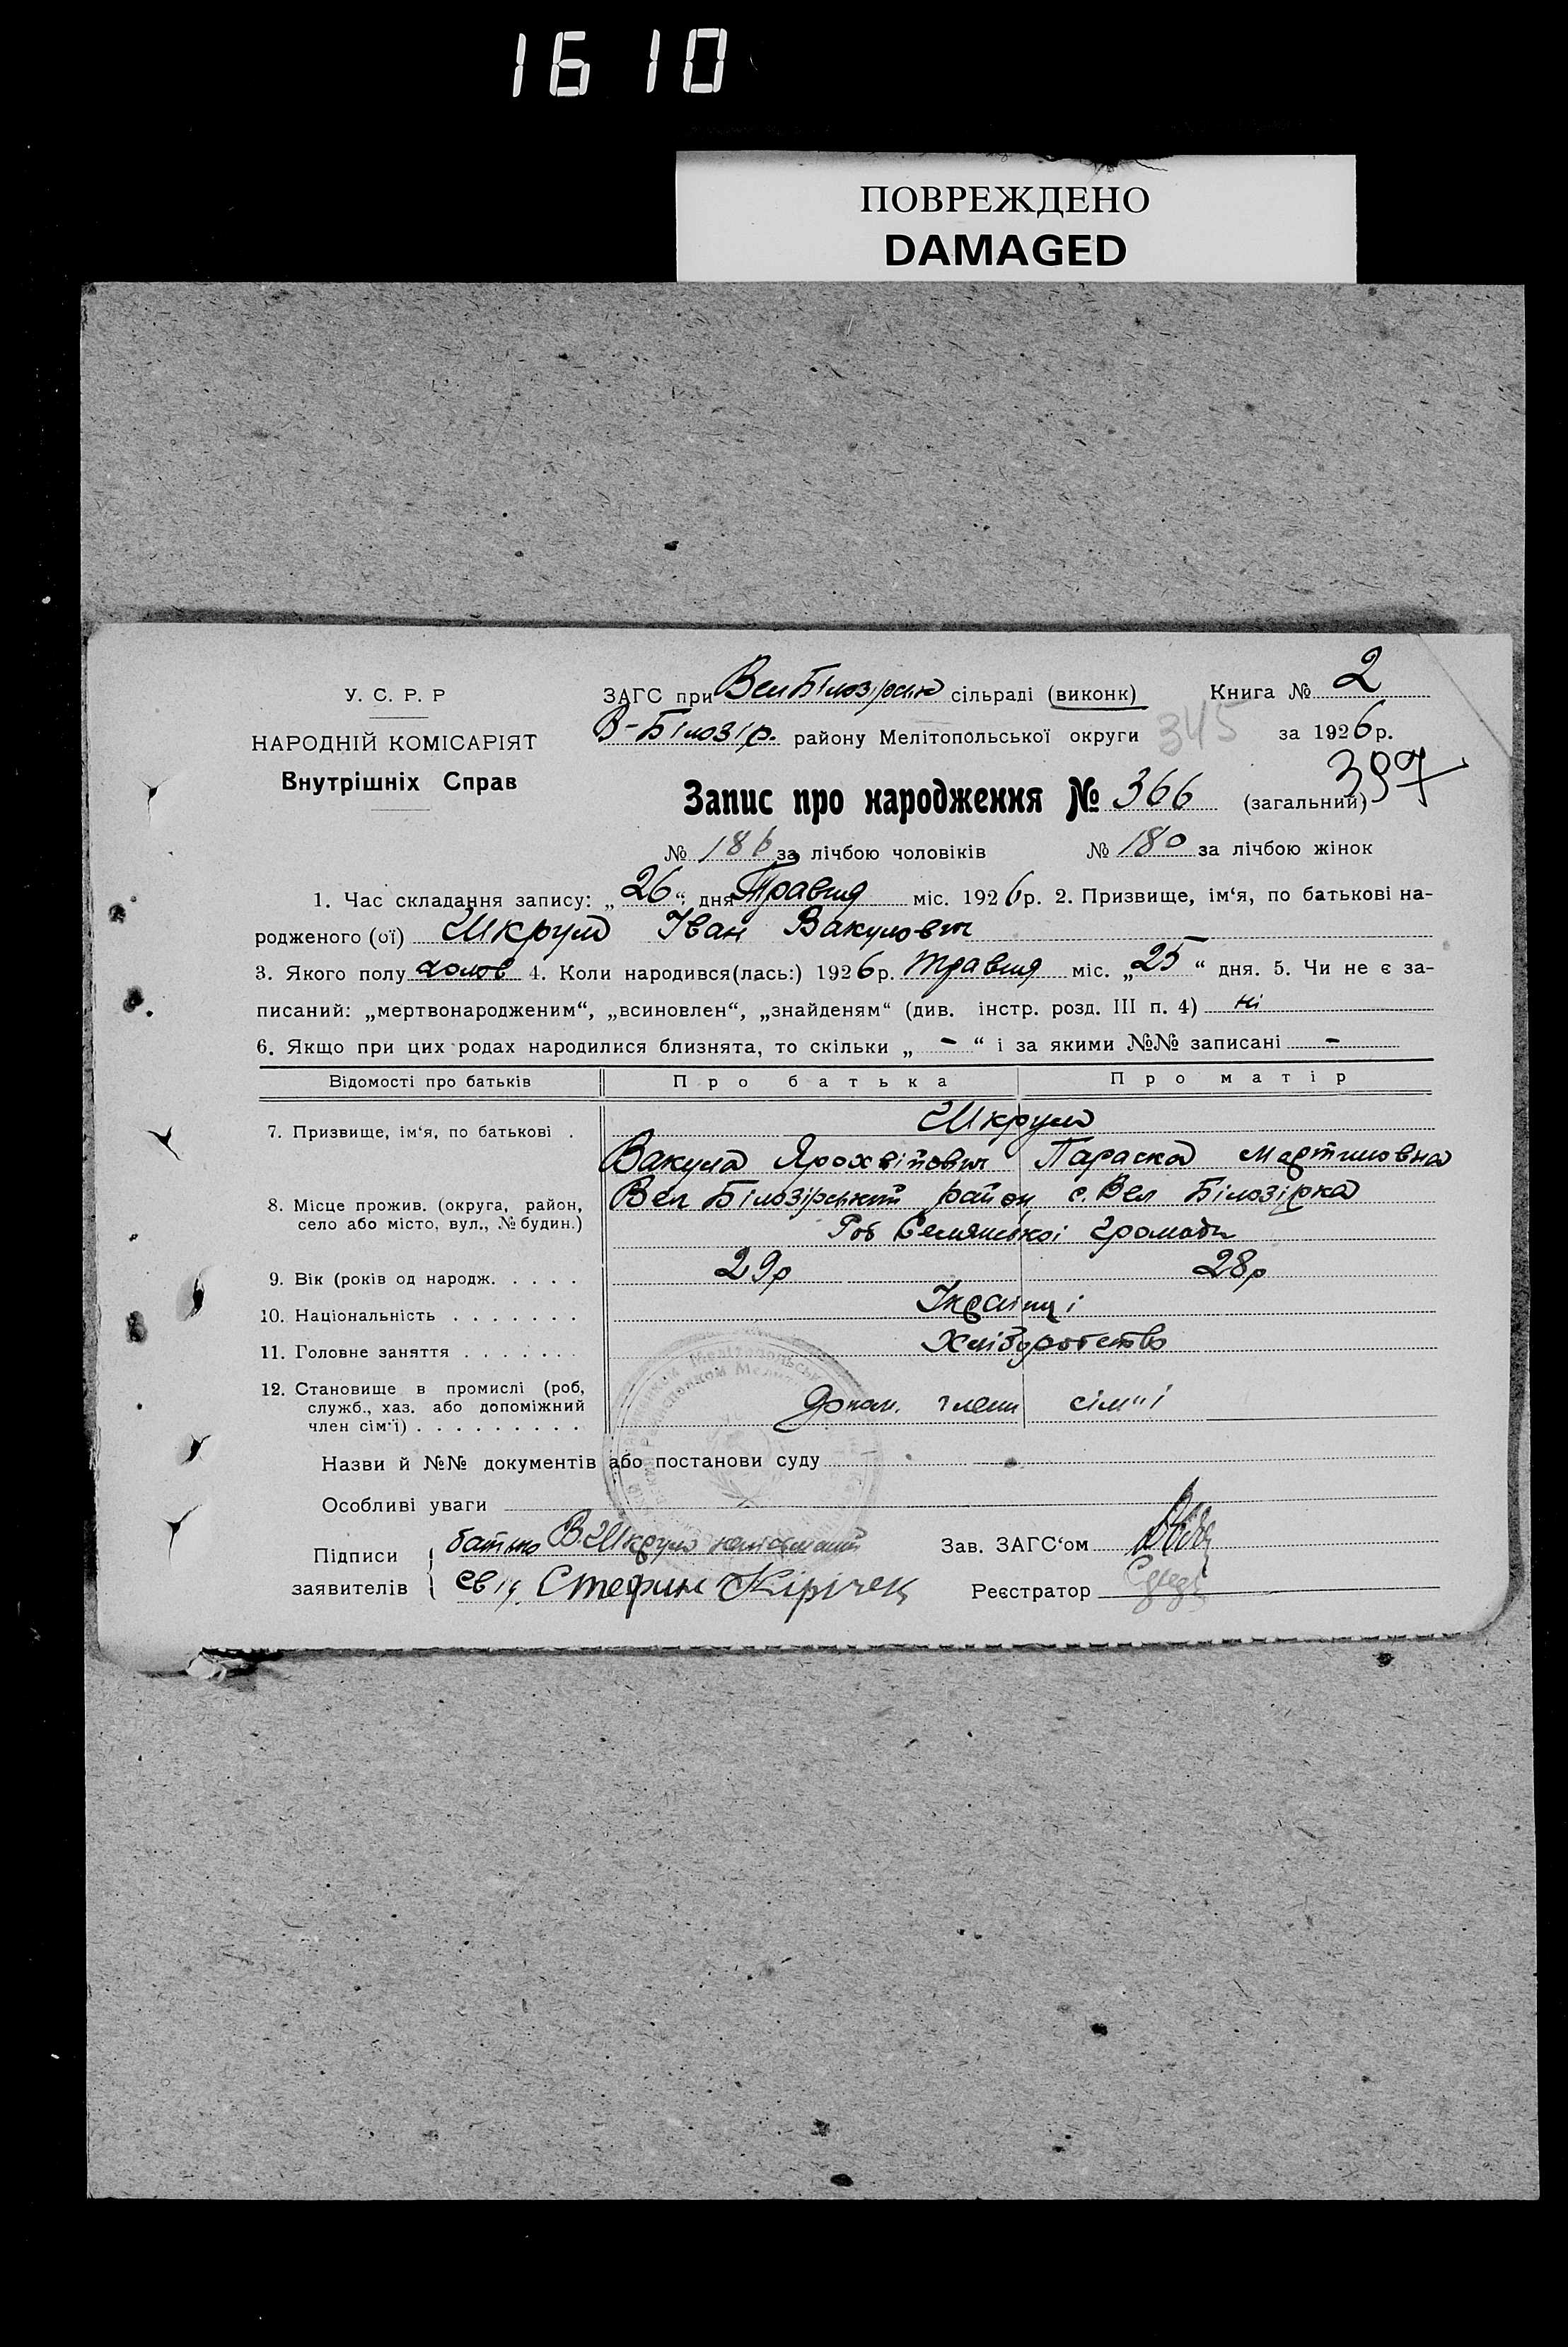 1610
ПОВРЕЖДЕНО
DAMAGED
У. С. Р. Р
НАРОДНІЙ КОМІСАРІЯТ
Внутрішніх Справ
ЗАГС при Вел Білозірськ сільраді (виконк) Книга № 2
В-Білозір. району Мелітопольської округи 345 за 1926р.
397
Запис про народження № 366 (загальний)
№ 186 за лічбою чоловіків № 180 за лічбою жінок
1. Час складання запису: „26“ дня Травня міс. 1926р. 2. Призвище, ім‘я, по батькові на-
родженого (ої) Шкрум Іван Вакулович
3. Якого полу чолов 4. Коли народився(лась:) 1926р. Травня міс. „25“ дня. 5. Чи не є за-
писаний: „мертвонародженим“, „всиновлен“, „знайденям“ (див. інстр. розд. III п. 4) ні
6. Якщо при цих родах народилися близнята, то скільки „ - “ і за якими №№ записані -
Відомості про батьків Про батька Про матір
Шкрум
7. Призвище, ім‘я, по батькові .
Вакула Мартиновна Параска
8. Місце прожив. (округа, район, Вел Білозірський район с. Вел Білозірка
село або місто, вул., № будин.)
громади
9. Вік (років од народж. . . . . 29р 28р
10. Національність . . . . . . . Українці
11. Головне заняття . . . . . . . Хліборобство
12. Становище в промислі (роб,
служб., хаз. або допоміжний допом. члени сім"ї
член сім‘ї) . . . . . . . . .
Назви й №№ документів або постанови суду
Особливі уваги
Підписи батько В Шкрум Зав. ЗАГС‘ом
заявителів свід. Стефин Кірічек Реєстратор